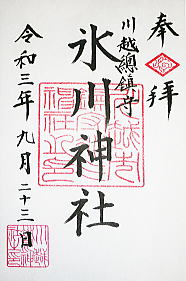 奉拝
川越總鎮守
氷川神社
令和三年九月二十三日